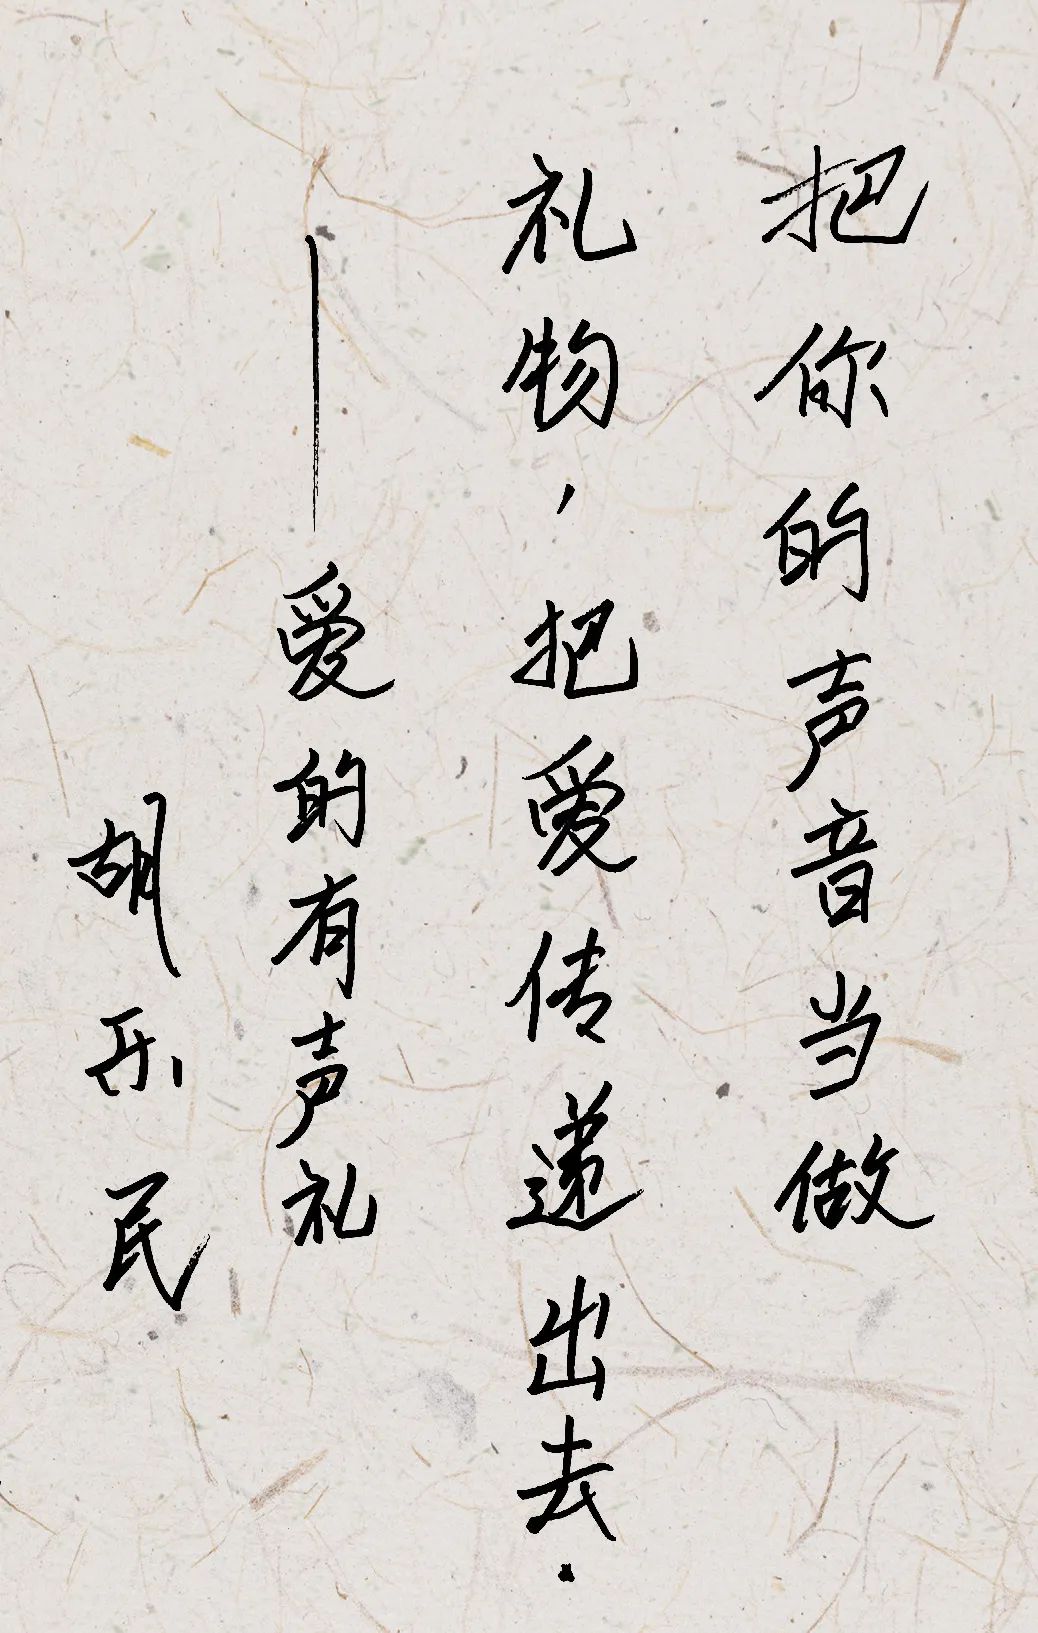 把你的声音当做
礼物，把爱传递出去.
——爱的有声礼
胡乐民